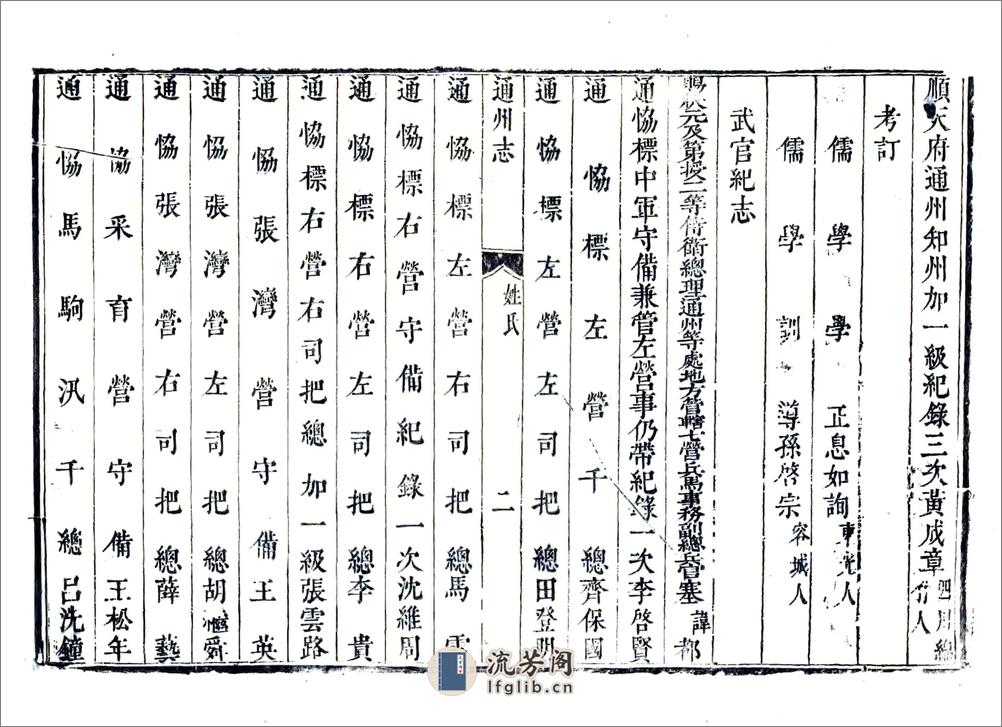 順天府通州知州加一級紀錄三次黃成章四川綿竹人
考訂
儒學學正息如詢東光人
儒學訓導孫啓宗容城人
武官紀志
賜狀元及第授二等侍衛總理通州等處地方管轄七營兵馬事務副總兵官塞諱都
通恊標中軍守備兼管左營事仍帶紀錄一次李啓賢
通恊標左營千總齊保國
通恊標左營左司把總田登明
通州志
姓氏
二
通恊標左營右司把總馬
通恊標右營守備紀錄一次沈維周
通恊標右營左司把總李貴
通恊標右營右司把總加一級張雲路
通恊張灣營守備王英
通恊張灣營左司把總胡舜
通恊張灣營右司把總薛藝
通恊采育營守備王松年
通恊馬駒汛千總呂洗鐘
流芳阁
lfglib.cn